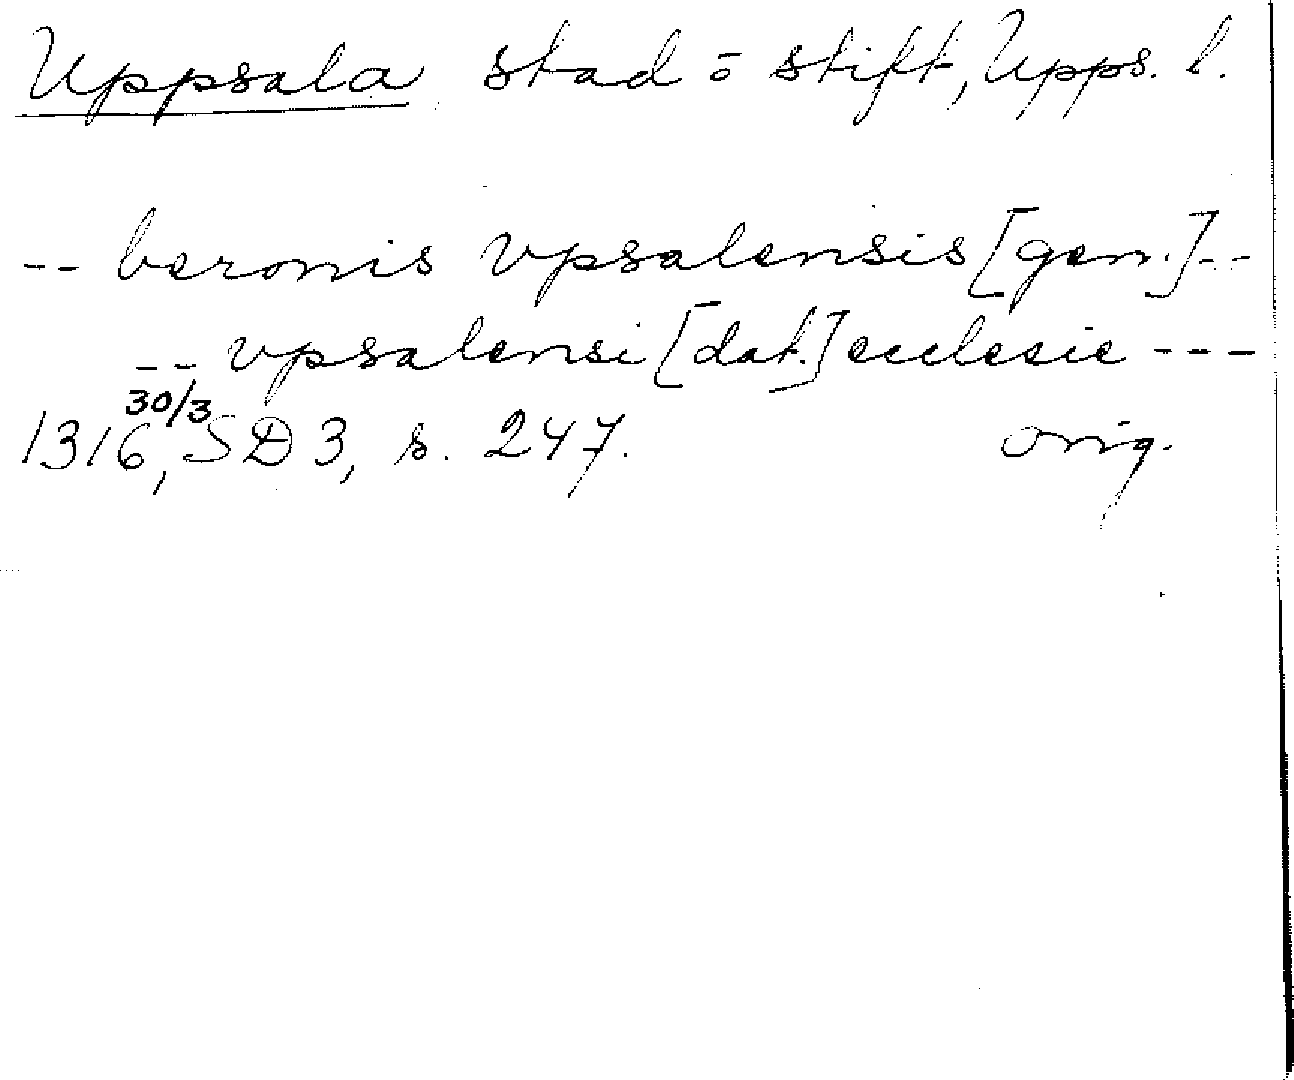 Uppsala stad o stift, Upps. l.
-- beronis vpsalensis [gen.] --
-- vpsalensi [dat.] ecclesie ---
30/3
1316, SD 3, s. 247. orig.